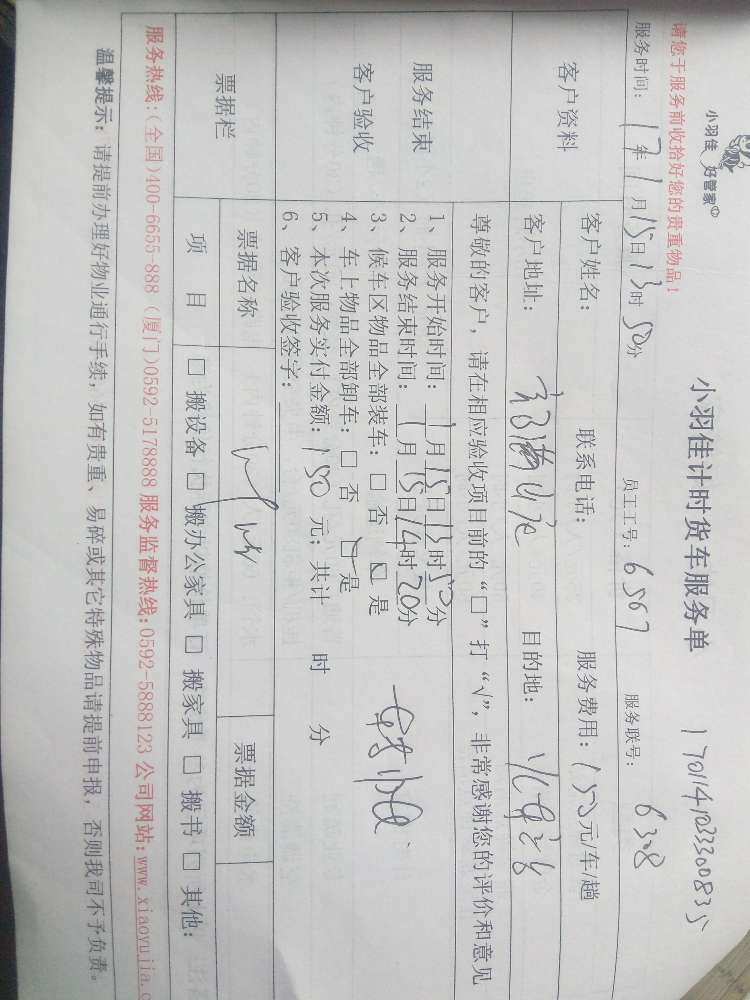 小羽佳 好管家
小羽佳计时货车服务单
请您于服务前收拾好您的贵重物品！
服务时间：17年1月15日13时50分 员工工号：6567 服务联号：6308
客户资料
客户姓名： 联系电话： 服务费用：150元/车/趟
客户地址： 目的地：
尊敬的客户，请在相应验收项目前的“□”打“√”，非常感谢您的评价和意见
服务结束
客户验收
1、服务开始时间：1月15日13时50分
2、服务结束时间：1月15日14时20分
3、候车区物品全部装车：□ 否 ☑ 是
4、车上物品全部卸车：□ 否 ☑ 是
5、本次服务实付金额：150元；共计 时 分
6、客户验收签字：
票据栏
票据名称 票据金额
项 目 □ 搬设备 □ 搬办公家具 □ 搬家具 □ 搬书 □ 其他：
服务热线：（全国）400-6655-888（厦门）0592-5178888 服务监督热线：0592-5888123 公司网站：www.xiaoyujia.c
温馨提示：请提前办理好物业通行手续，如有贵重、易碎或其它特殊物品请提前申报，否则我司不予负责。